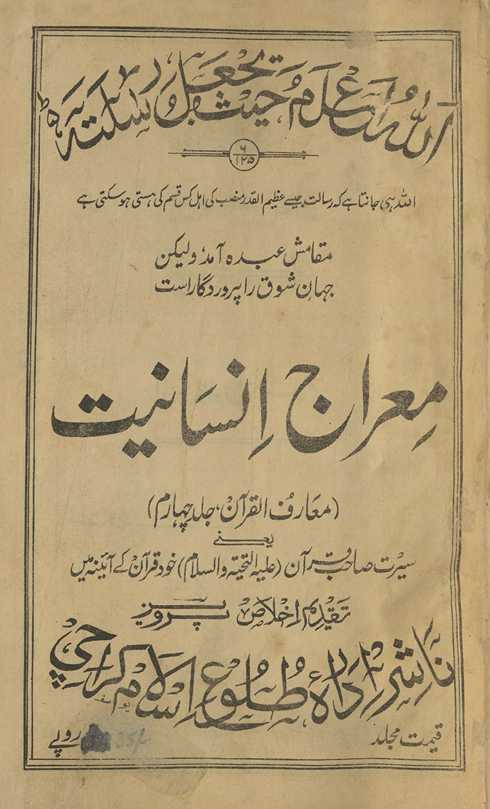 اللہُ اَعْلَمُ حَیْثُ یَجْعَلُ رِسَالَتَہٗ
۶
۱۲۵
اللہ ہی جانتا ہے کہ رسالت جیسے عظیم القدر منصب کی اہل کس قسم کی ہستی ہو سکتی ہے
مقامش عبدہٗ آمد ولیکن
جہانِ شوق را پروردگار است
معراجِ اِنسانیت
(معارف القرآن، جلد چہارم)
یعنی
سیرت صاحبِ قرآن (علیہ التحیۃ والسلام) خود قرآن کے آئینہ میں
تقدیم اِخلاص پرویز
ناشر ادارۂ طلوعِ اسلام کراچی
قیمت مجلد 35/- روپے